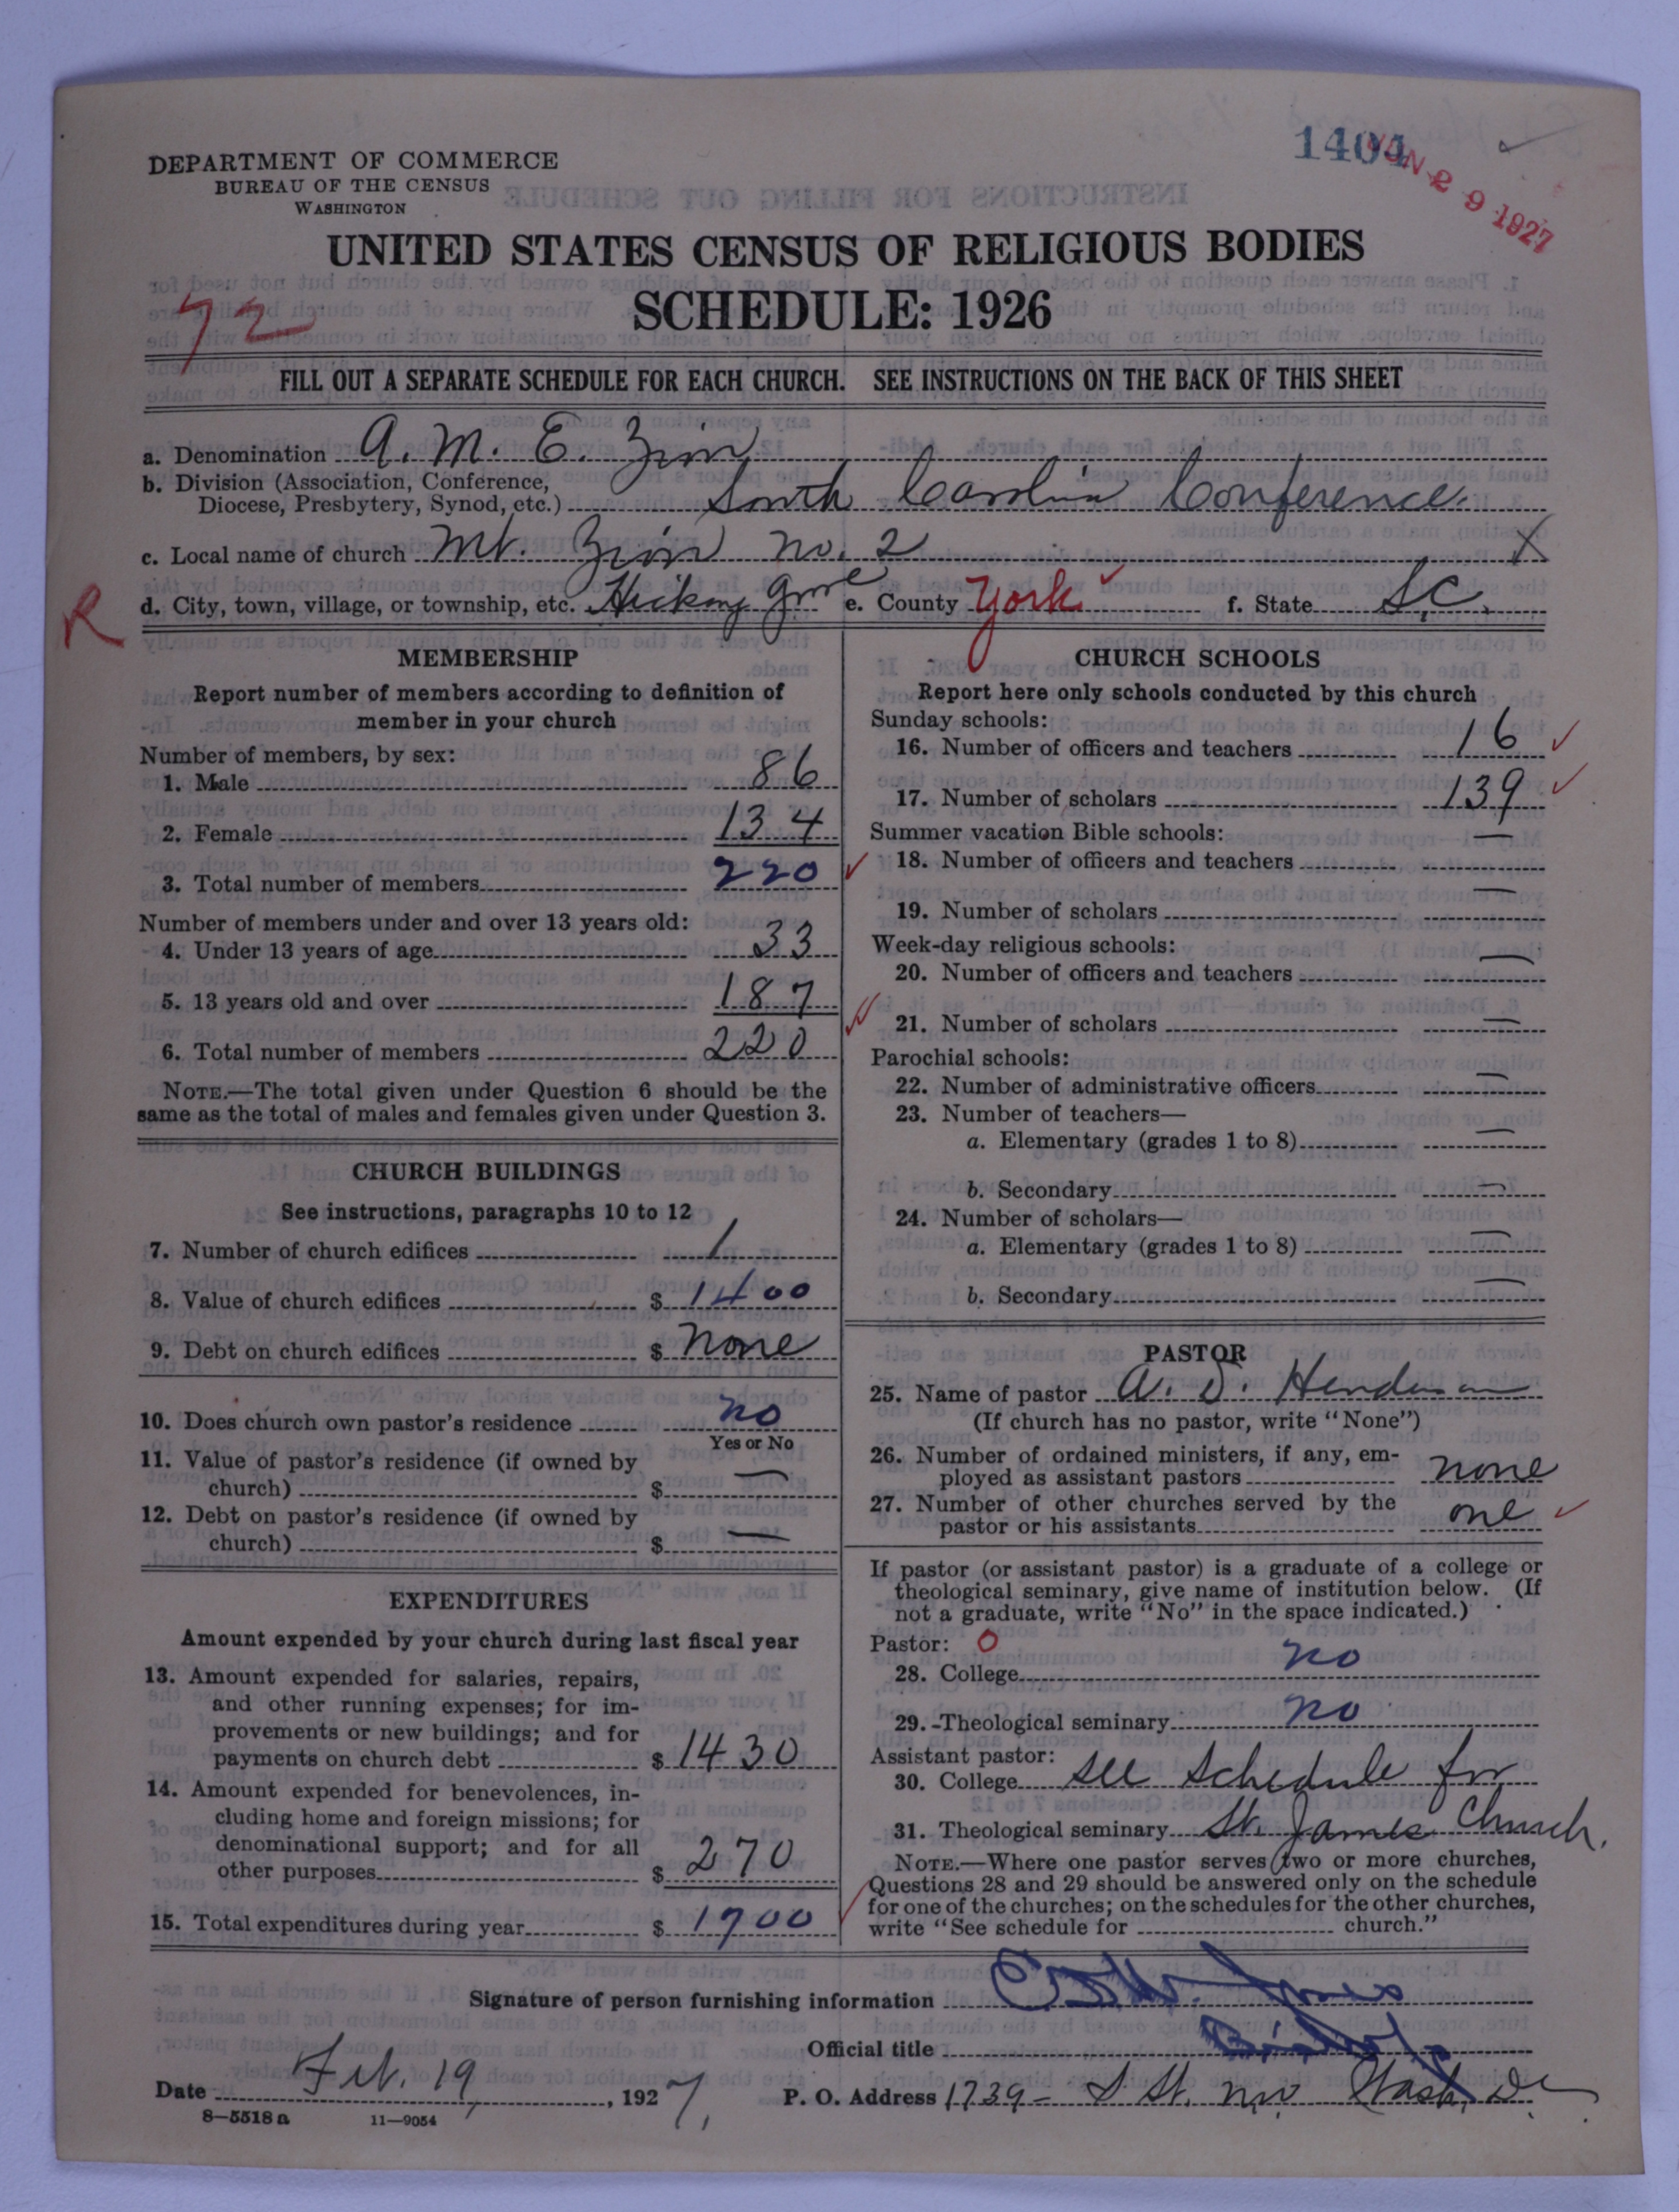 1404
JUN 29 1927
DEPARTMENT OF COMMERCE
BUREAU OF THE CENSUS
WASHINGTON
UNITED STATES CENSUS OF RELIGIOUS BODIES
72
SCHEDULE: 1926
FILL OUT A SEPARATE SCHEDULE FOR EACH CHURCH. SEE INSTRUCTIONS ON THE BACK OF THIS SHEET
a. Denomination A. M. E. Zion
b. Division (Association, Conference,
Diocese, Presbytery, Synod, etc.) South Carolina Conference.
c. Local name of church Mt. Zion no. 2 X
R d. City, town, village, or township, etc. Hickory Grove e. County York f. State S.C.
MEMBERSHIP
Report number of members according to definition of
member in your church
Number of members, by sex:
1. Male 86
2. Female 134
3. Total number of members 220
Number of members under and over 13 years old:
4. Under 13 years of age 33
5. 13 years old and over 187
6. Total number of members 220
NOTE.—The total given under Question 6 should be the
same as the total of males and females given under Question 3.
CHURCH BUILDINGS
See instructions, paragraphs 10 to 12
7. Number of church edifices 1
8. Value of church edifices $ 1400
9. Debt on church edifices $ None
10. Does church own pastor's residence no
Yes or No
11. Value of pastor's residence (if owned by
church) $ —
12. Debt on pastor's residence (if owned by
church) $ —
EXPENDITURES
Amount expended by your church during last fiscal year
13. Amount expended for salaries, repairs,
and other running expenses; for im-
provements or new buildings; and for
payments on church debt $ 1430
14. Amount expended for benevolences, in-
cluding home and foreign missions; for
denominational support; and for all
other purposes $ 270
15. Total expenditures during year $ 1700
CHURCH SCHOOLS
Report here only schools conducted by this church
Sunday schools:
16. Number of officers and teachers 16
17. Number of scholars 139
Summer vacation Bible schools:
18. Number of officers and teachers —
19. Number of scholars —
Week-day religious schools:
20. Number of officers and teachers —
21. Number of scholars —
Parochial schools:
22. Number of administrative officers —
23. Number of teachers—
a. Elementary (grades 1 to 8) —
b. Secondary —
24. Number of scholars—
a. Elementary (grades 1 to 8) —
b. Secondary —
PASTOR
25. Name of pastor A. D. Henderson
(If church has no pastor, write "None")
26. Number of ordained ministers, if any, em-
ployed as assistant pastors none
27. Number of other churches served by the
pastor or his assistants one
If pastor (or assistant pastor) is a graduate of a college or
theological seminary, give name of institution below. (If
not a graduate, write "No" in the space indicated.)
Pastor: 0
28. College no
29. Theological seminary no
Assistant pastor:
30. College See Schedule for
31. Theological seminary St. James Church.
NOTE.—Where one pastor serves two or more churches,
Questions 28 and 29 should be answered only on the schedule
for one of the churches; on the schedules for the other churches,
write "See schedule for church."
Signature of person furnishing information Jones
Official title Bishop
Date Feb. 19, 1927, P. O. Address 1739- S St. nw Wash, DC
8-5518a 11-9054